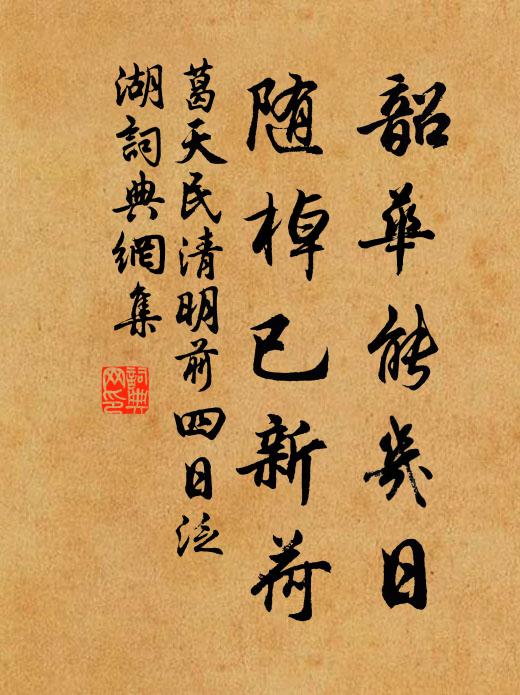 韶華能幾日
随棹已新荷
葛天民清明前四日泛
湖詞典網集
詞典
网印